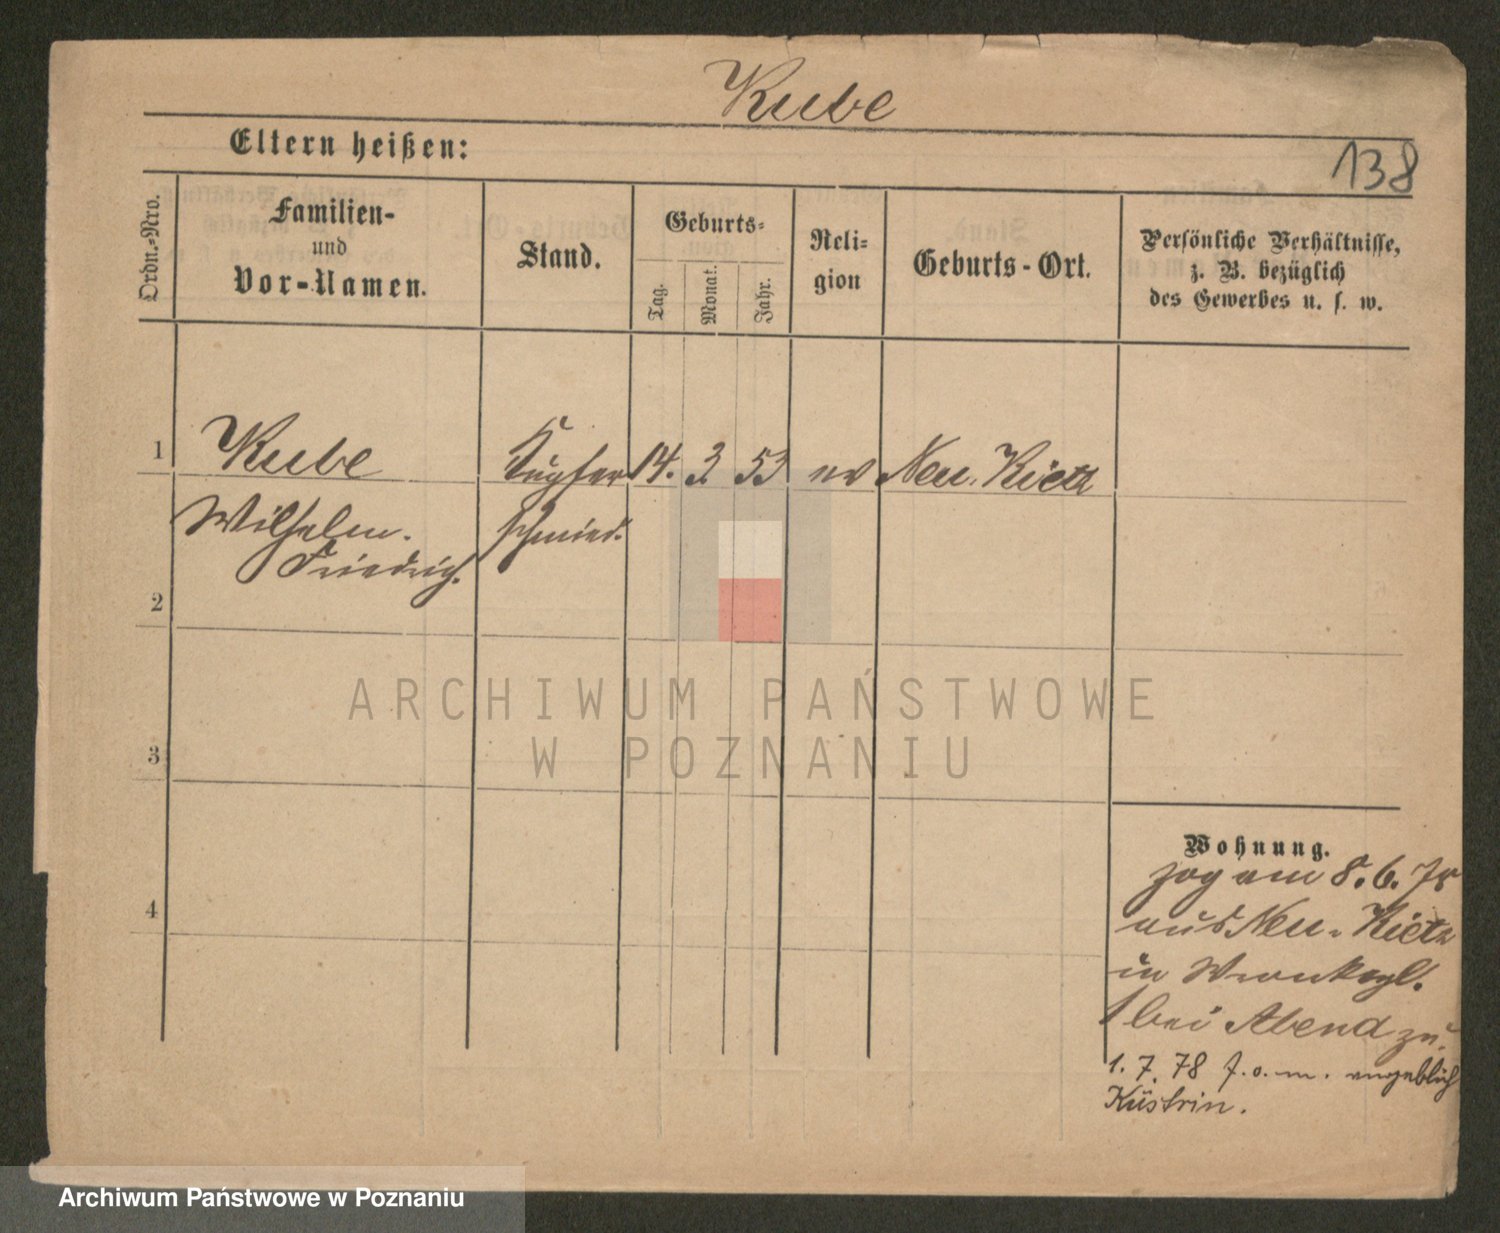 Kube
Eltern heißen:
138
Ordn.-Nro.
Familien-
und
Vor-Namen.
Stand.
Geburts-
Tag.
Monat.
Jahr.
Reli-
gion
Geburts-Ort.
Persönliche Verhältnisse,
z. B. bezüglich
des Gewerbes u. s. w.
1 Kube Kupfer 14. 3 53 ev Neu. Kietz
Wilhelm. schmied.
Friedrich.
2
3
4
Wohnung.
zog am 8. 6. 78
aus Neu-Kietz
in
1 bei Abend zu.
1. 7. 78 f. o. m. angeblich
Küstrin.
ARCHIWUM PAŃSTWOWE
W POZNANIU
Archiwum Państwowe w Poznaniu